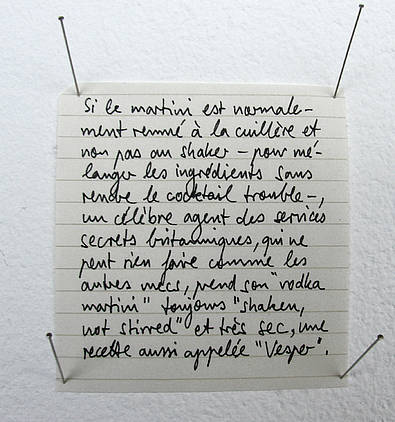 Si le martini est normale-
ment remué à la cuillère et
non pas au shaker – pour mé-
langer les ingrédients sans
rendre le cocktail trouble –,
un célèbre agent des services
secrets britanniques, qui ne
peut rien faire comme les
autres mecs, prend son "vodka
martini" toujours "shaken,
not stirred" et très sec, une
recette aussi appelée "Vesper".